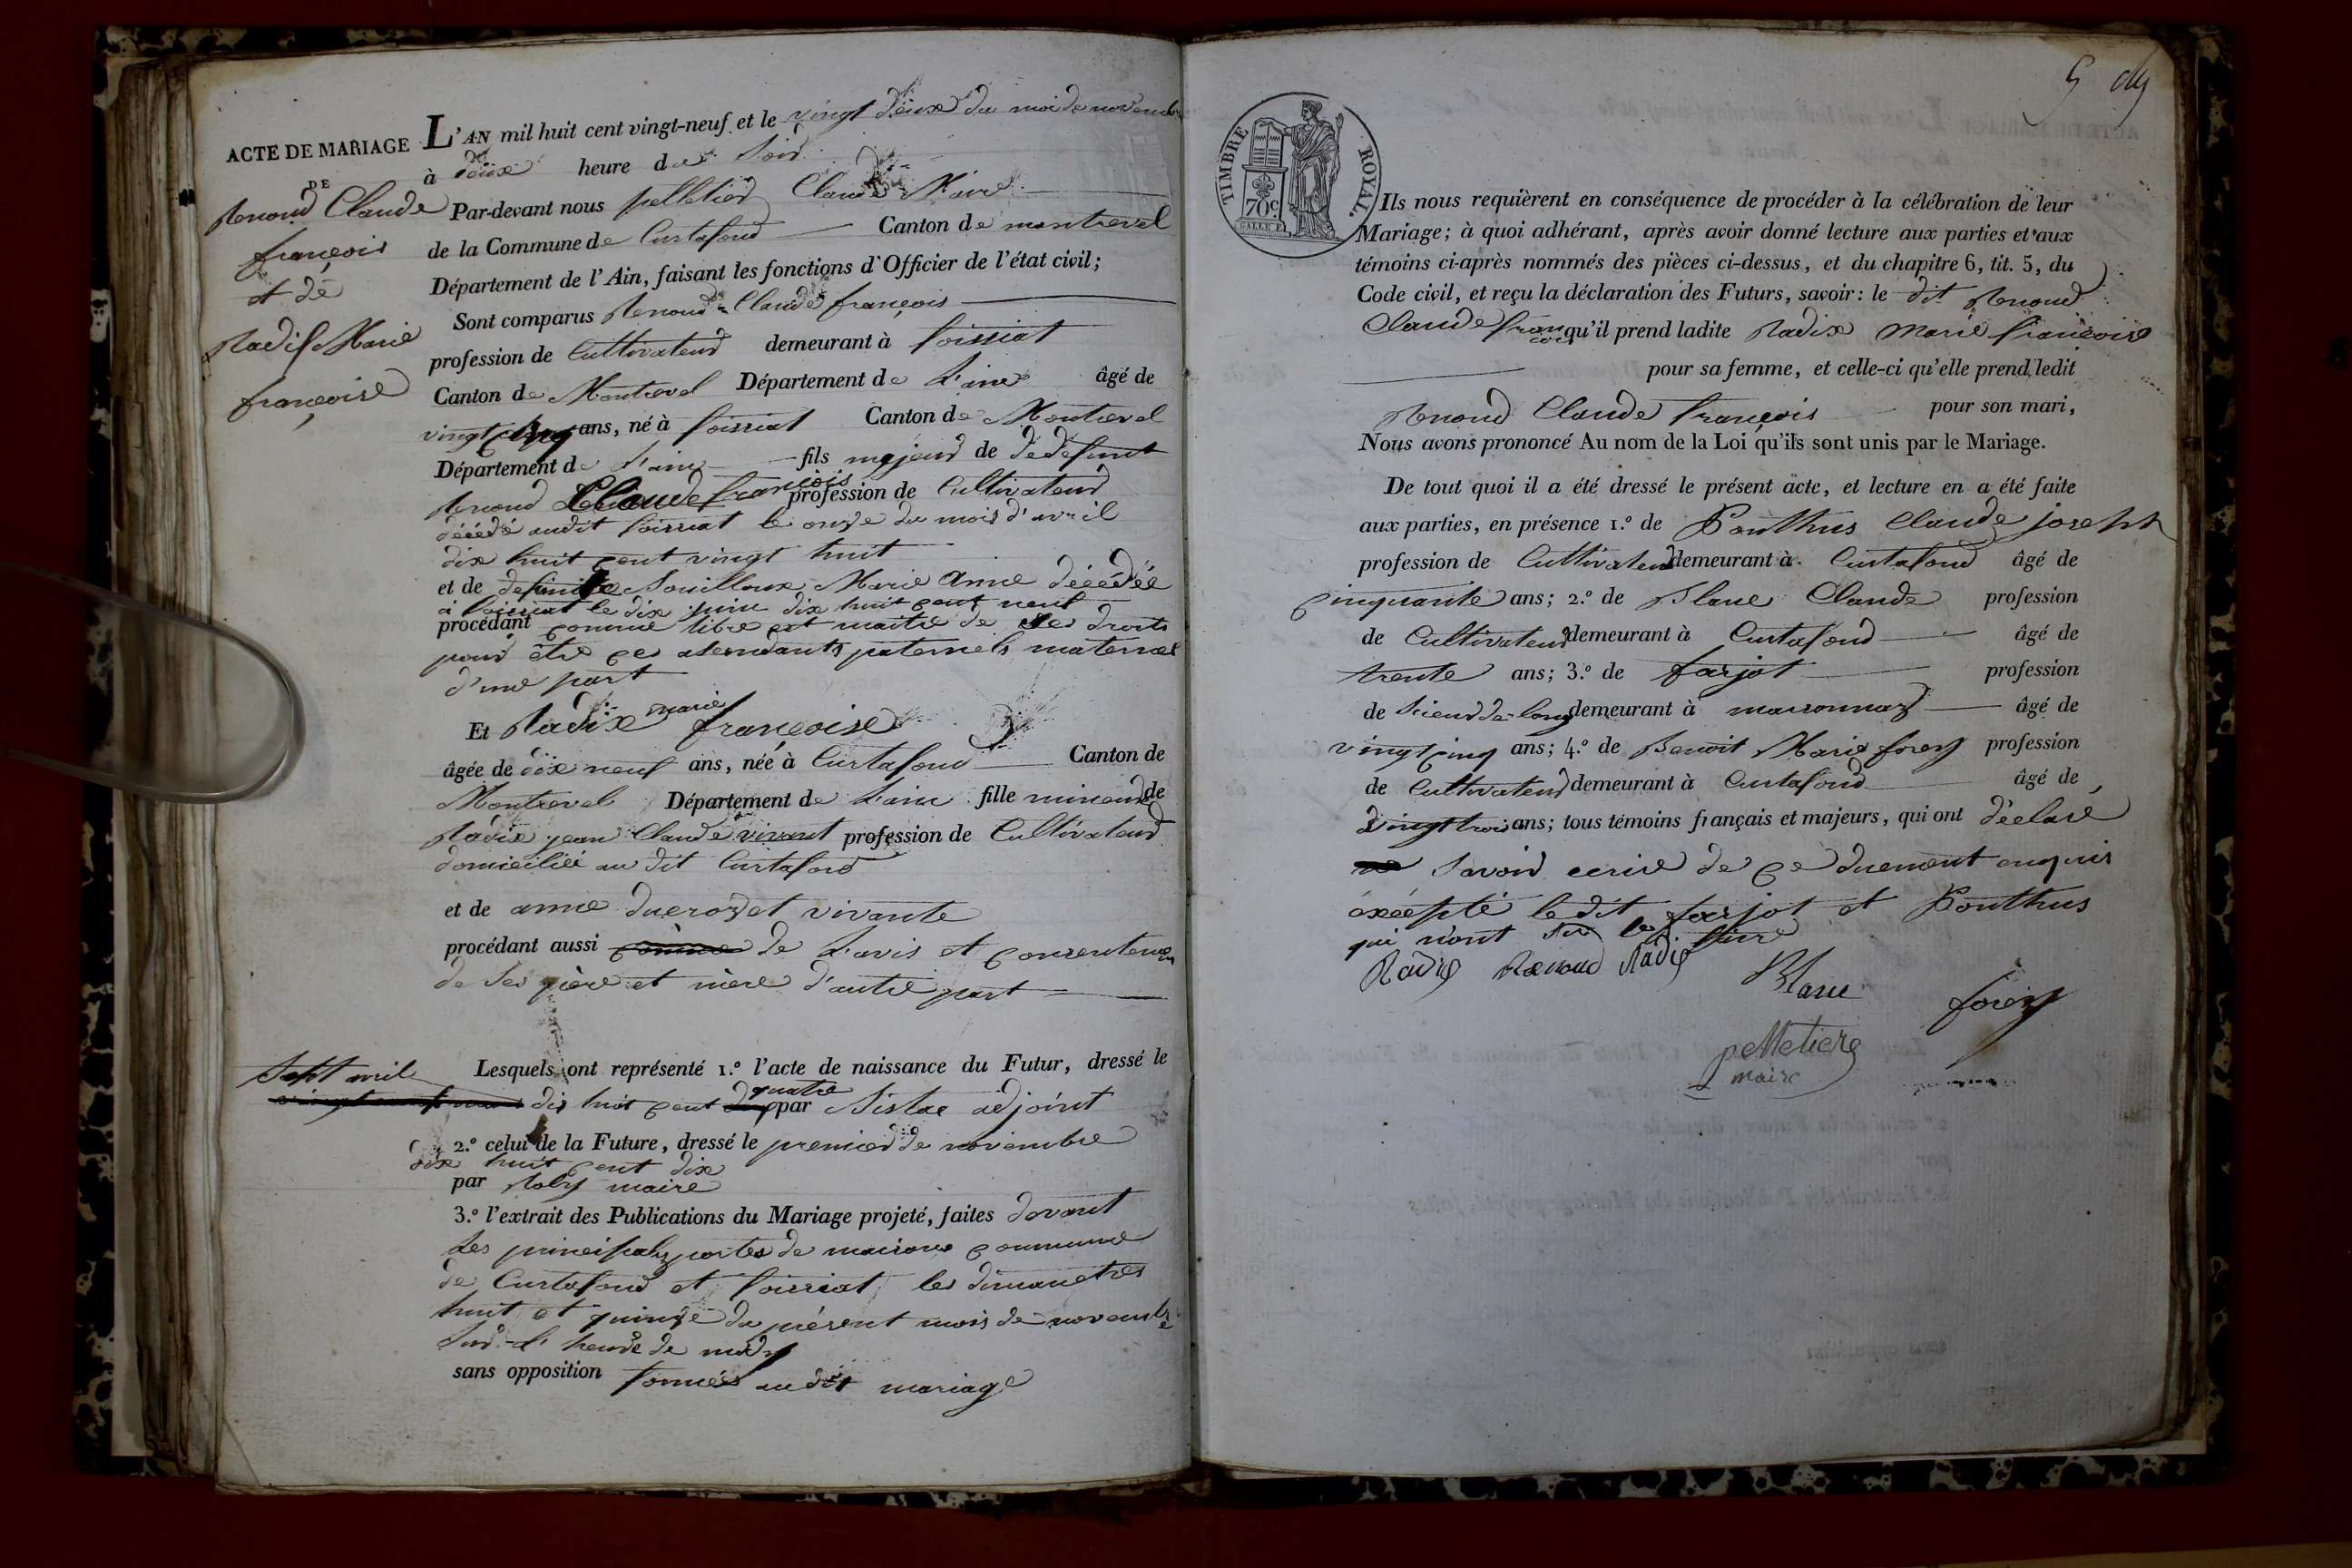 ACTE DE MARIAGE
DE
Renoud Claude
françois
et de
Radix Marie
françoise
L'AN mil huit cent vingt-neuf et le vingt deux du moi de novembre
à deux heure du Soir
Par-devant nous pelletier Claude Maire
de la Commune de Curtafond Canton de montrevel
Département de l'Ain, faisant les fonctions d'Officier de l'état civil;
Sont comparus Renoud Claude françois
profession de Cultivateur demeurant à foissiat
Canton de Montrevel Département de L'ain âgé de
vingt cinq ans, né à foissiat Canton de Montrevel
Département de L'ain fils majeur de de defunt
Renoud Claude françois profession de Cultivateur
décédé audit foissiat le onze du mois d'avril
dix huit cent vingt huit
et de defunte Souilloux Marie Anne décédée
a foissiat le dix juin dix huit cent neuf
procédant comme libre et maitre de ses droits
pour être ces asendants paternels maternel
d'une part
Et Radix marie françoise
âgée de dix neuf ans, née à Curtafond Canton de
Montrevel Département de L'ain fille mineure de
Radix jean Claude vivant profession de Cultivateur
domicilié au dit Curtafond
et de anne ducrozet vivante
procédant aussi comme de L'avis et consentement
de Ses père et mère d'autre part
Lesquels ont représenté 1.º l'acte de naissance du Futur, dressé le
Sept mil
dix huit cent quatre par Sislac adjoint
2.º celui de la Future, dressé le premier de novembre
dix huit cent dix
par Roby maire
3.º l'extrait des Publications du Mariage projeté, faites devant
les principales portes de maison commune
de Curtafond et foissiat les dimanches
huit et quinze du présent mois de novembre
Sur l'heure de midy
sans opposition formées au dit mariage
5
TIMBRE ROYAL.
70c.
Ils nous requièrent en conséquence de procéder à la célébration de leur
Mariage; à quoi adhérant, après avoir donné lecture aux parties et aux
témoins ci-après nommés des pièces ci-dessus, et du chapitre 6, tit. 5, du
Code civil, et reçu la déclaration des Futurs, savoir: le dit Renoud
Claude françois qu'il prend ladite Radix Marie françoise
pour sa femme, et celle-ci qu'elle prend ledit
Renoud Claude françois pour son mari,
Nous avons prononcé Au nom de la Loi qu'ils sont unis par le Mariage.
De tout quoi il a été dressé le présent acte, et lecture en a été faite
aux parties, en présence 1.º de Pouthus Claude joseph
profession de Cultivateur demeurant à Curtafond âgé de
cinquante ans; 2.º de Blanc Claude profession
de Cultivateur demeurant à Curtafond âgé de
trente ans; 3.º de farjot profession
de Sieur de long demeurant à marsonnaz âgé de
vingt cinq ans; 4.º de Benoit Marie forey profession
de Cultivateur demeurant à Curtafond âgé de
vingt trois ans; tous témoins français et majeurs, qui ont déclaré
savoir ecrire de ce duement enquis
excepté le dit farjot et Pouthus
qui n'ont su le faire
Radix Renoud Radix
Blanc
forey
pelletier
maire